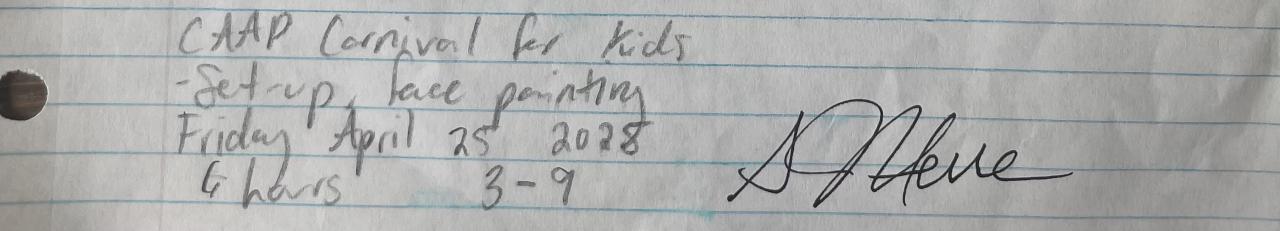 CAAP Carnival for kids
-Set-up, face painting
Friday April 25 2028
hours 3-9